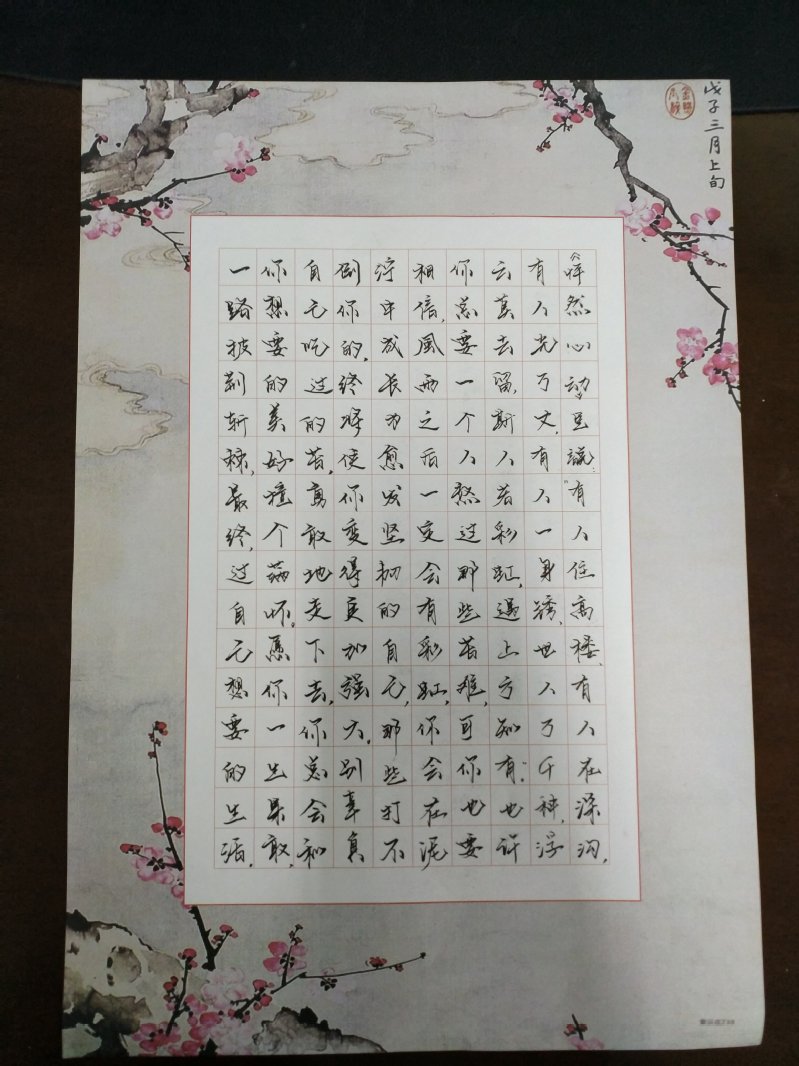 戊子三月上旬
《怦然心动》里説:"有人住高楼,有人在深沟,
有人光万丈,有人一身锈,世人万千种,浮
云莫去留,斯人若彩虹,遇上方知有。"也许
你总要一个人熬过那些苦难,可你也要
相信,風雨之后一定会有彩虹,你会在泥
泞中成长为愈发坚韧的自己,那些打不
倒你的,终将使你变得更加强大。别辜負
自己吃过的苦,勇敢地走下去,你总会和
你想要的美好撞个满怀。愿你一生果敢,
一路披荆斩棘,最终,过自己想要的生活。